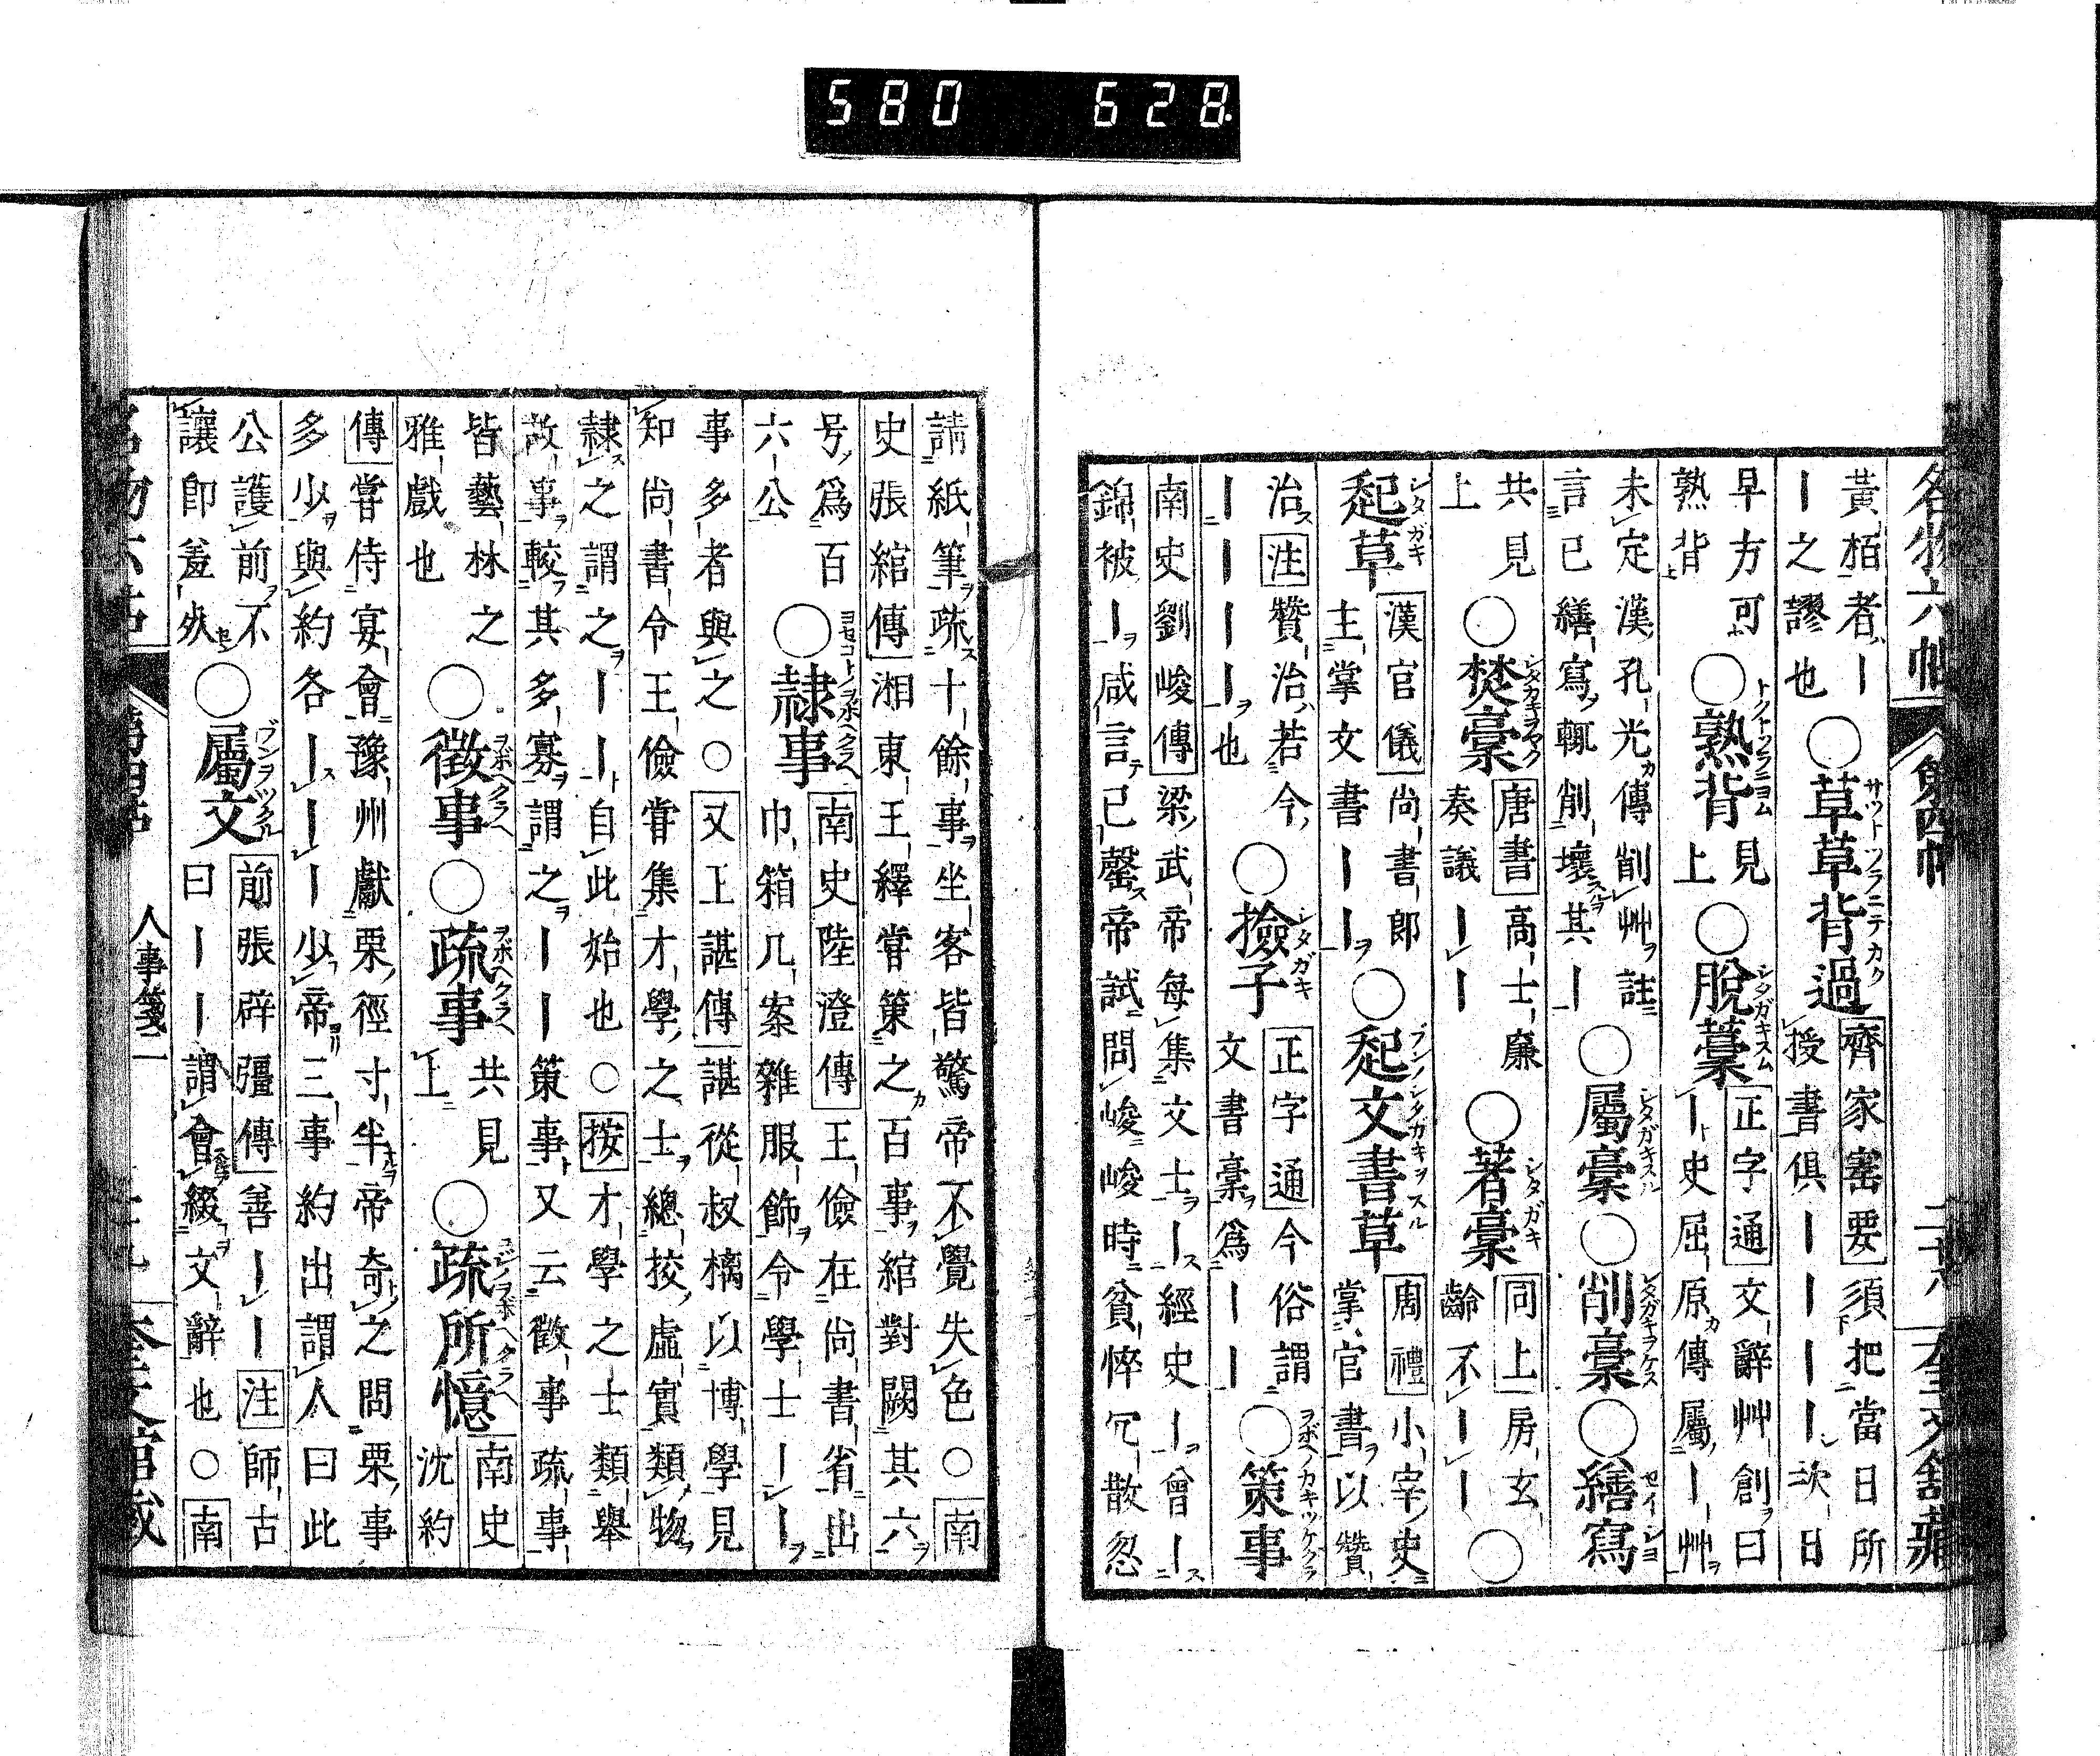 580 628
名物六帖 第四帖 二十八 奎文館藏
黃栢者｜
｜之謬也
○草草背過
齊家寶要須把當日所
授書俱｜｜｜｜次日
早方可
熟背
○熟背
見
上
○脫藁
正字通文辭艸創曰
｜史屈原傳屬｜艸
未定漢孔光傳削艸註
言已繕寫輒削壞其｜
○屬稾○削稾○繕寫
共見
上
○焚稾
唐書高士廉
奏議｜｜
○著稾
同上房玄
齡不｜｜
○
起草
漢官儀尚書郎
主掌文書｜｜
○起文書草
周禮小宰史
掌官書以贊
治注贊治若今
｜｜｜｜也
○撿子
正字通今俗謂
文書稾爲｜｜
○策事
南史劉峻傳梁武帝每集文士｜經史｜曾｜
錦被｜咸言已罄帝試問峻峻時貧悴冗散忽
請紙筆疏十餘事坐客皆驚帝不覺失色○南
史張綰傳湘東王繹嘗策之百事綰對闕其六
号爲百
六公
○隷事
南史陸澄傳王儉在尚書省出
巾箱几案雜服飾令學士｜｜
事多者與之○又王諶傳諶從叔樆以博學見
知尚書令王儉嘗集才學之士總挍虛實類物
隷之謂之｜｜自此始也○按才學之士類舉
故事較其多寡謂之｜｜策事又云徵事疏事
皆藝林之
雅戲也
○徵事○疏事
共見
上
○疏所憶
南史
沈約
傳嘗侍宴會豫州獻栗徑寸半帝奇之問栗事
多少與約各｜｜｜少帝三事約出謂人曰此
公護前不
讓即羞死
○屬文
前張辟彊傳善｜｜注師古
曰｜｜謂會綴文辭也○南
人事箋二